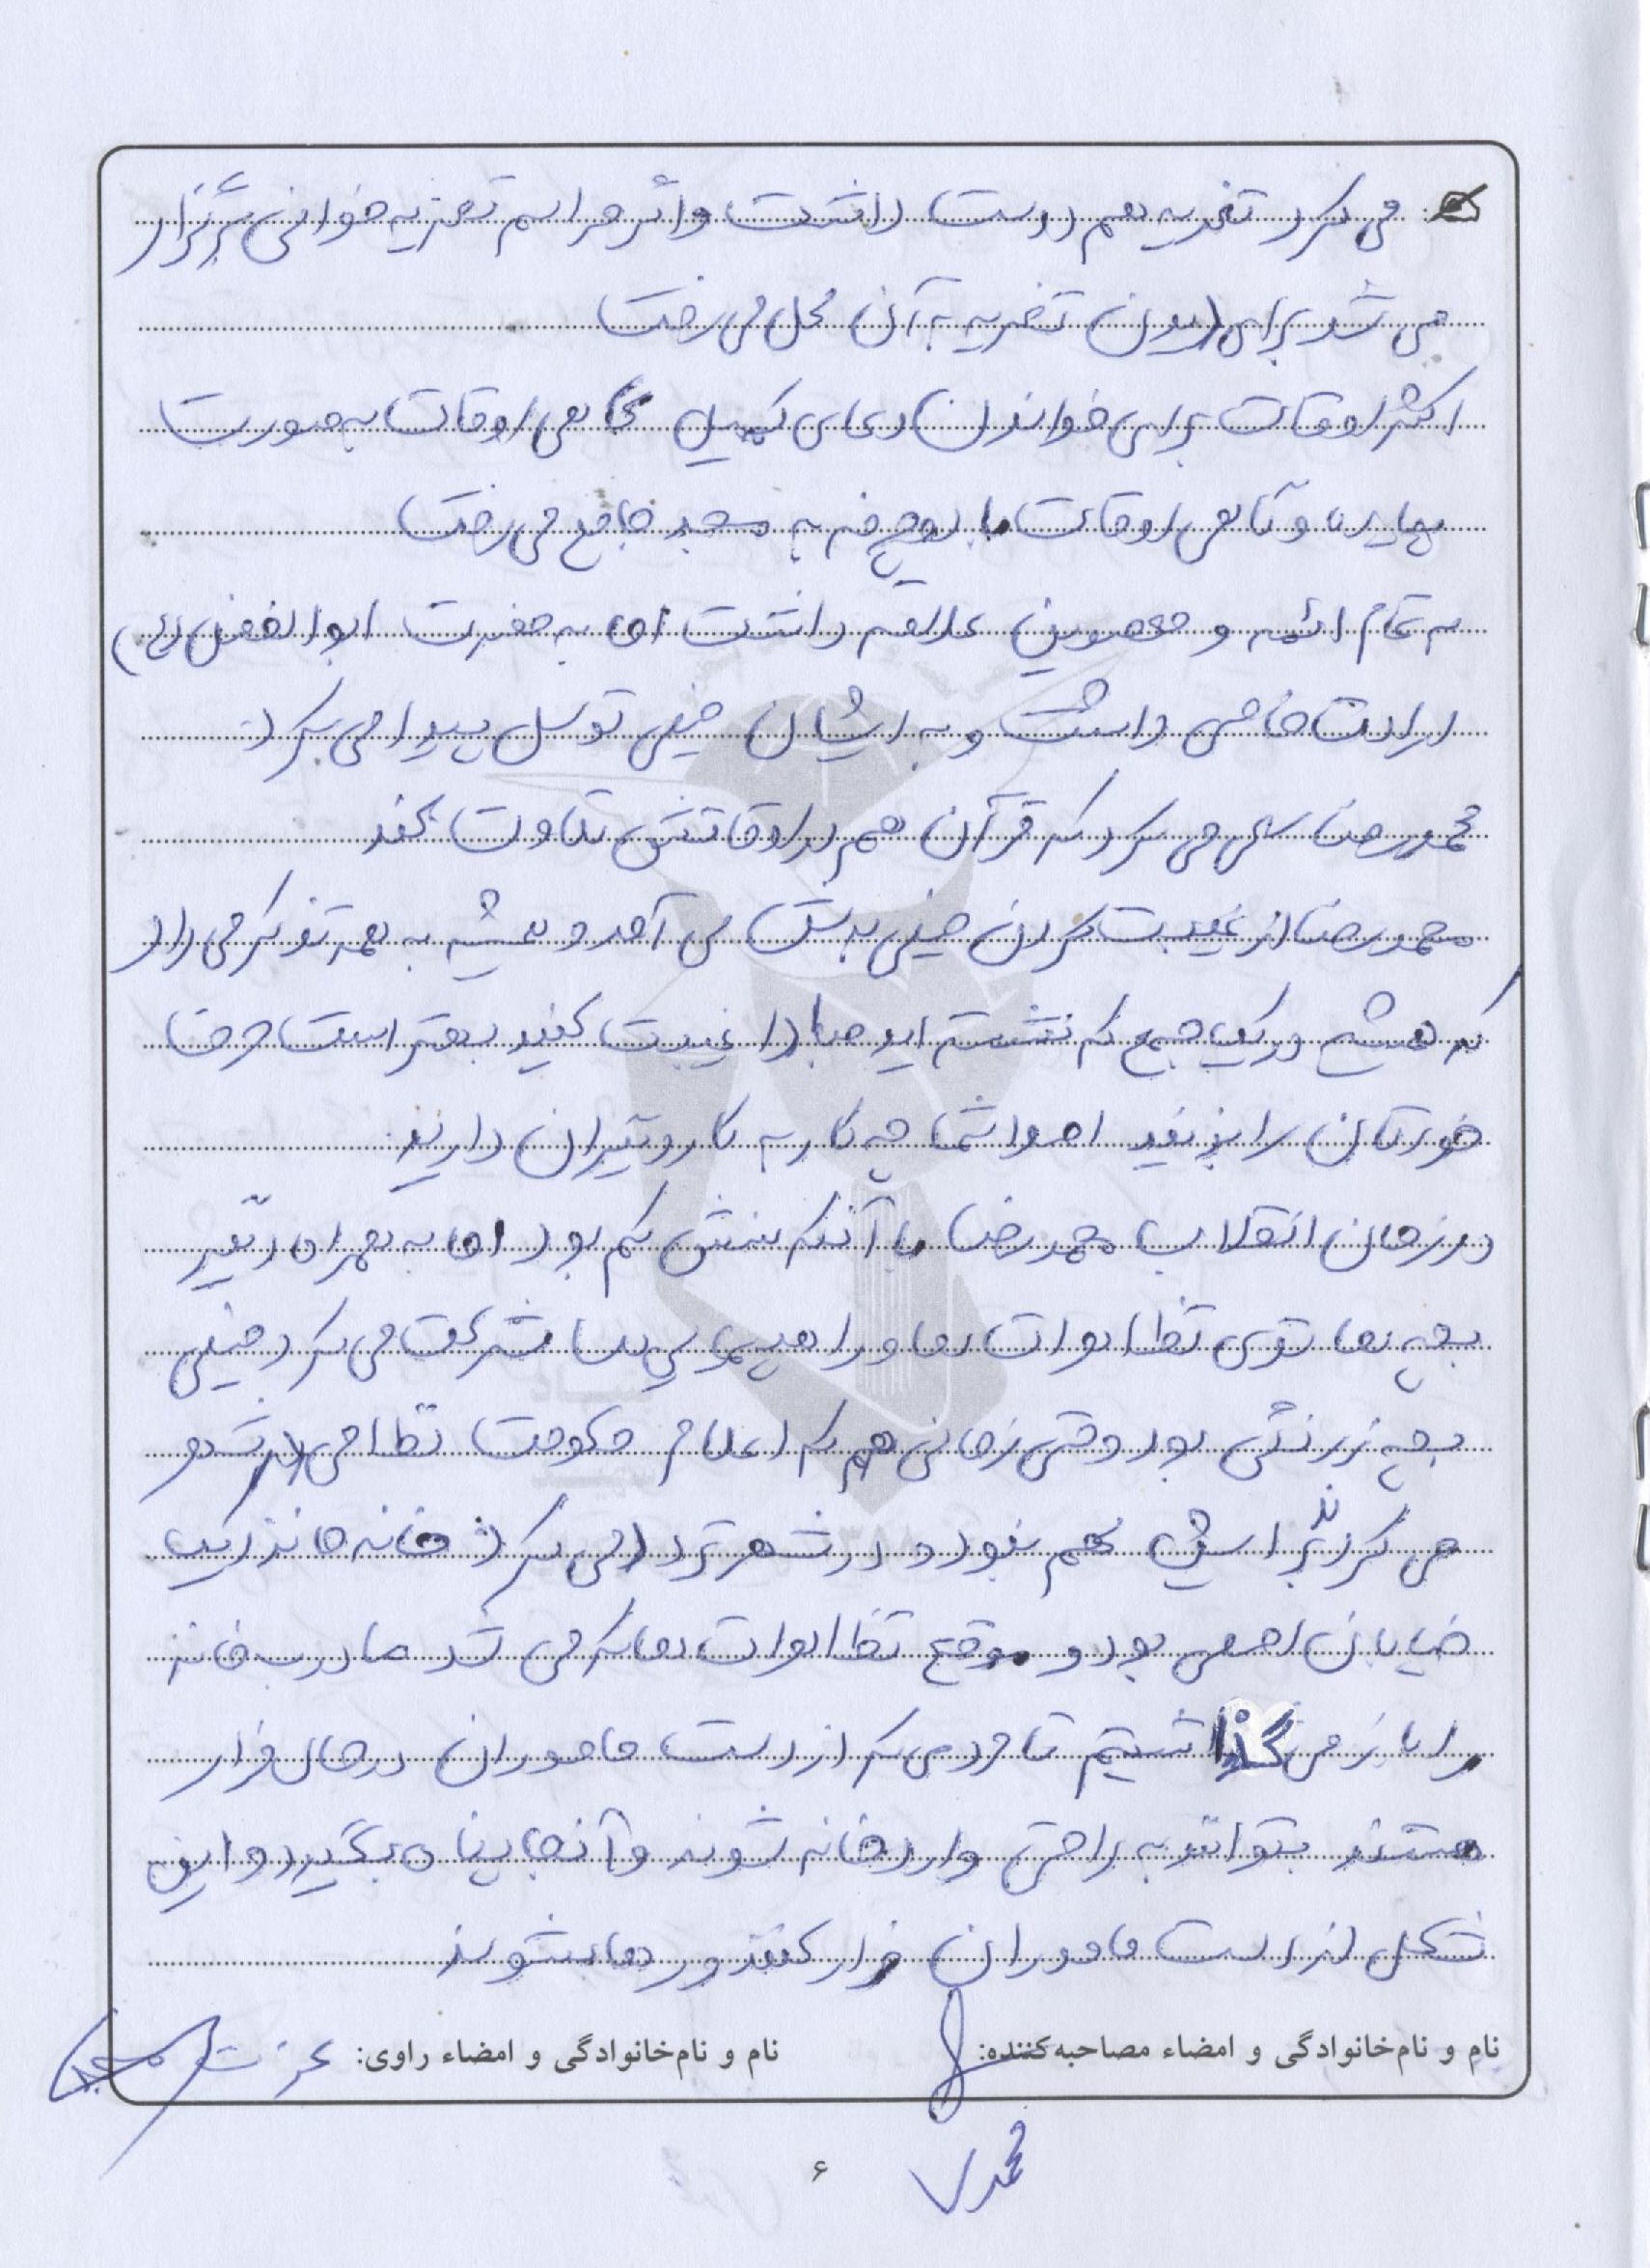 می کرد تغدیه هم دوست داشت و اگر مراسم تعزیه خوانی برگزار
می شد برای دیدن تغریه به آن محل می رفت
اکثر اوقات برای خواندن دعای کمیل گاهی اوقات به صورت
پیاده و گاهی اوقات با دوچرخه به مسجد جامع می رفت
به تمام ائمه و معصومین علاقه داشت اما به حضرت ابوالفضل (ع)
ارادت خاصی داشت و به ایشان خیلی توسل پیدا می کرد.
محمدرضا سعی می کرد که قرآن هم در اوقاتش تلاوت کند
محمدرضا از غیبت کردن خیلی بدش می آمد و همیشه به همه تذکر می داد
که همیشه در یک جمع که نشسته اید مبادا غیبت کنید بهتر است حرف
خودتان را بزنید اصوا شما چه کار به کار دیگران دارید.
در زمان انقلاب محمدرضا با آنکه سنش کم بود اما به همراه دیگر
بچه ها توی تظاهرات ها و راهپیمایی ها شرکت می کرد خیلی
بچه زرنگی بود وقتی زمانی هم که اعلام حکومت نظامی در شهر
می کردند براش مهم نبود و در شهر تردد می کرد خانه ما نزدیک
خیابان اصلی بود و موقع تظاهرات ها که می شد ما درب خانه
را باز می گذاشتیم تا مردمی که از دست ماموران در حال فرار
هستند بتوانند به راحتی وارد خانه شوند و آنجا پناه بگیرد و این
شکل از دست ماموران فرار کنند و رها بشوند
نام و نام‌خانوادگی و امضاء مصاحبه‌کننده: نام و نام‌خانوادگی و امضاء راوی: عزت
محمدی
۶